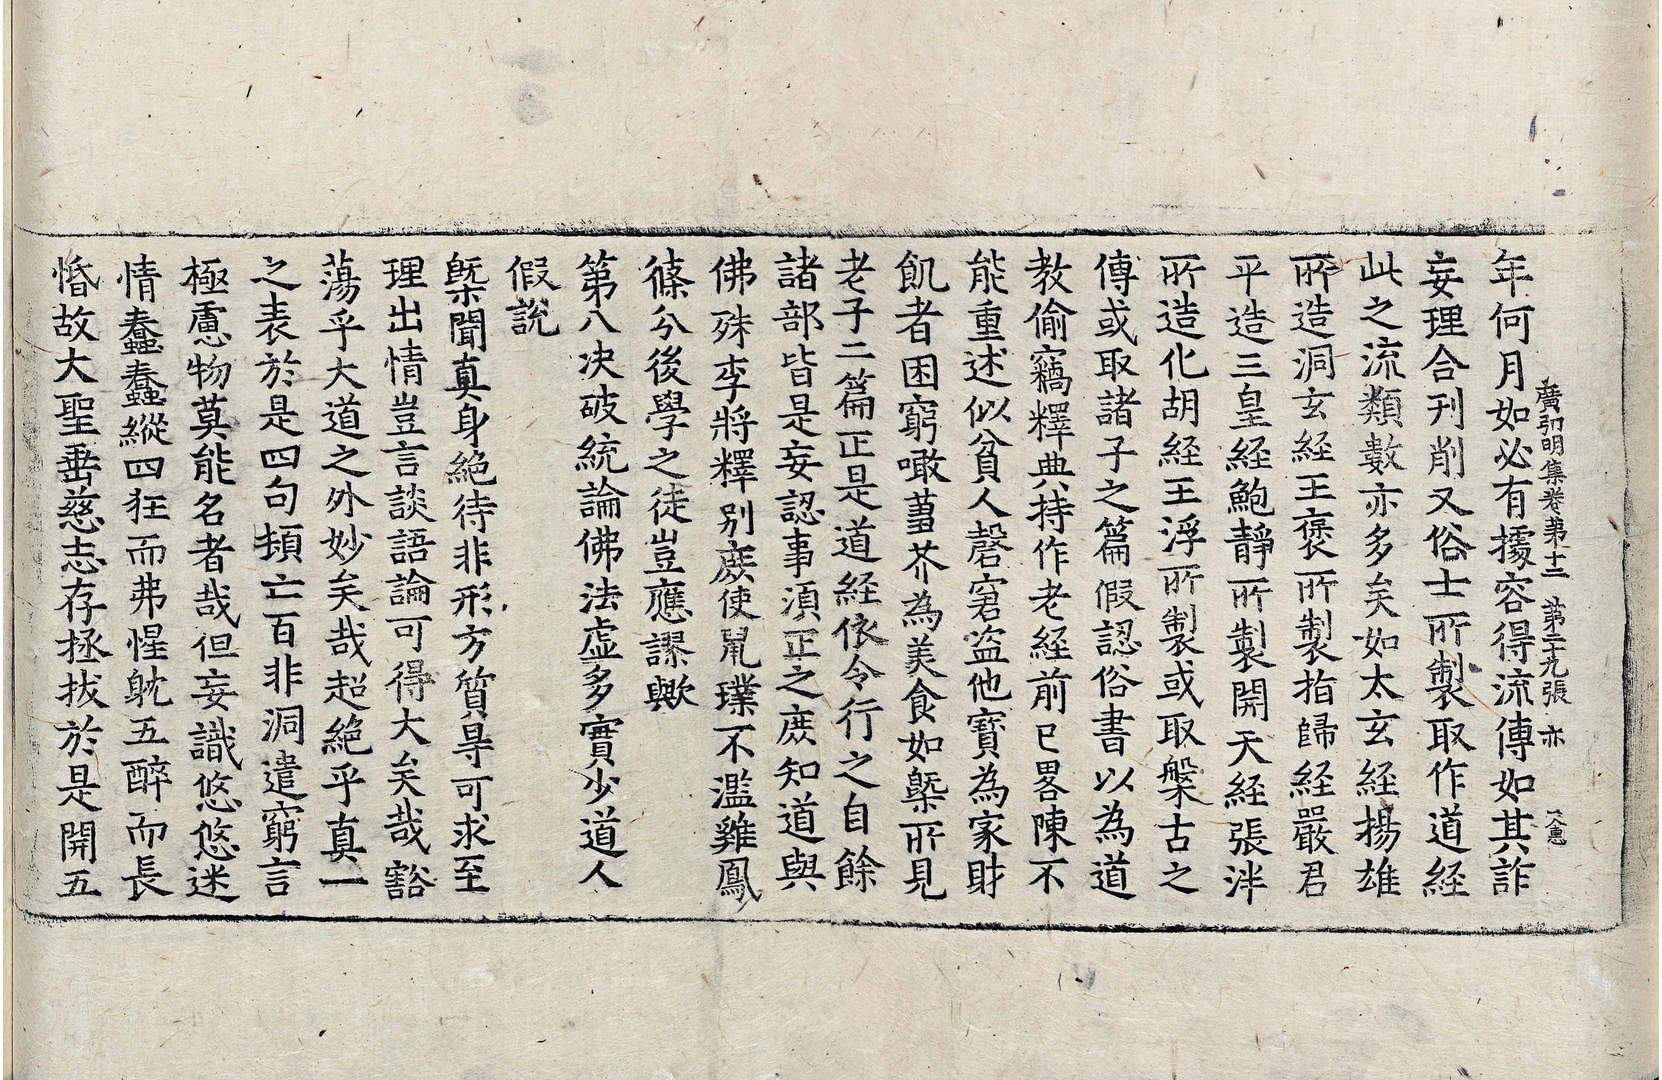 廣弘明集卷第十二 第二十九張 亦
年何月如必有據容得流傳如其詐
妄理合刋削又俗士所製取作道経
此之流類數亦多矣如太玄経楊雄
所造洞玄経王褒所製指歸経嚴君
平造三皇経鮑靜所製開天経張泮
所造化胡経王浮所製或取槃古之
傳或取諸子之篇假認俗書以為道
教偷竊釋典持作老経前已畧陳不
能重述似貧人磬窘盗他寶為家財
飢者困窮噉薑芥為美食如槩所見
老子二篇正是道経依令行之自餘
諸部皆是妄認事湏正之庻知道與
佛殊李將釋别庻使鼠璞不濫雞鳳
條兮後學之徒豈應謬歟
第八决破統論佛法虛多實少道人
假說
槩聞真身絶待非形方質㝵可求至
理出情豈言談語論可得大矣哉豁
蕩乎大道之外妙矣哉超絶乎真一
之表於是四句頓亡百非洞遣窮言
極慮物莫能名者哉但妄識悠悠迷
情蠢蠢縱四狂而弗惺躭五醉而長
惛故大聖垂慈志存拯拔於是開五